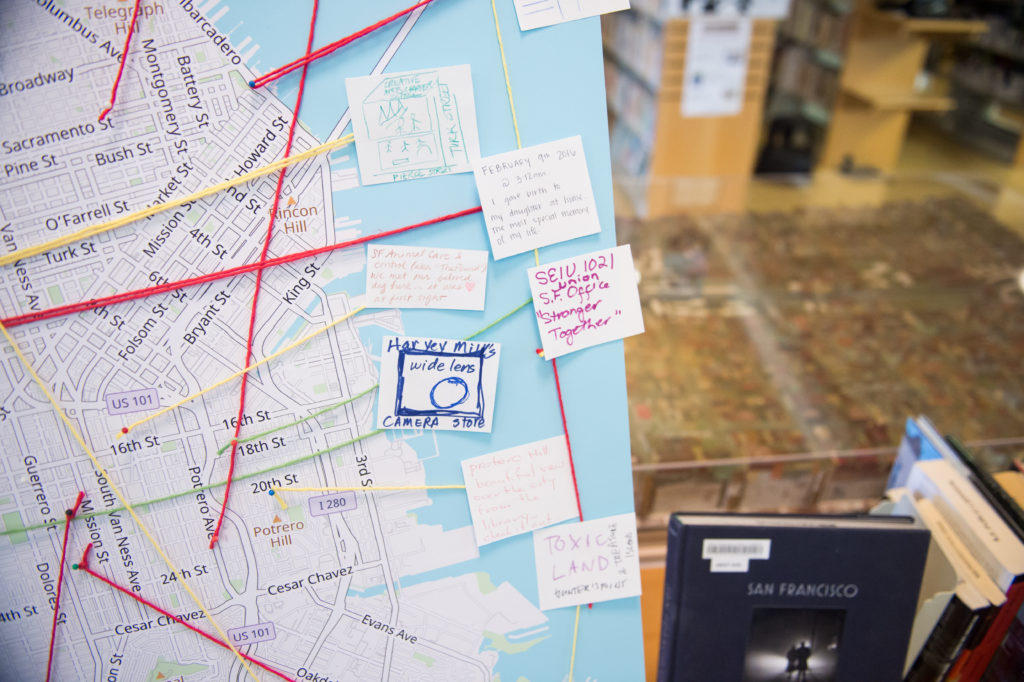 Columbus Ave
Telegraph
Hill
Embarcadero
Broadway
Montgomery St
Battery St
Sacramento St
Pine St
Bush St
Howard St
Market St
2nd St
O'Farrell St
Turk St
Mission St
4th St
Rincon
Hill
Van Ness Ave
6th St
Folsom St
Bryant St
King St
US 101
16th St
16th St
18th St
20th St
3rd St
I 280
Guerrero St
South Van Ness Ave
Mission St
Potrero Ave
Potrero
Hill
Dolores St
24th St
Cesar Chavez
Cesar Chavez
US 101
Evans Ave
CREATIVE
PIERCE STREET
FEBRUARY 9th 2016
@ 3:12am
I gave birth to
my daughter at home
the most special memory
of my life.
SF Animal Care &
we met our beloved
at first sight
SEIU 1021
Union
S.F. Office
"Stronger
Together"
Harvey Milk's
wide lens
CAMERA STORE
Potrero Hill
beautiful view
over the city
from the
library
TOXIC
LAND
HUNTER'S POINT
& TREASURE
ISLAND
SAN FRANCISCO